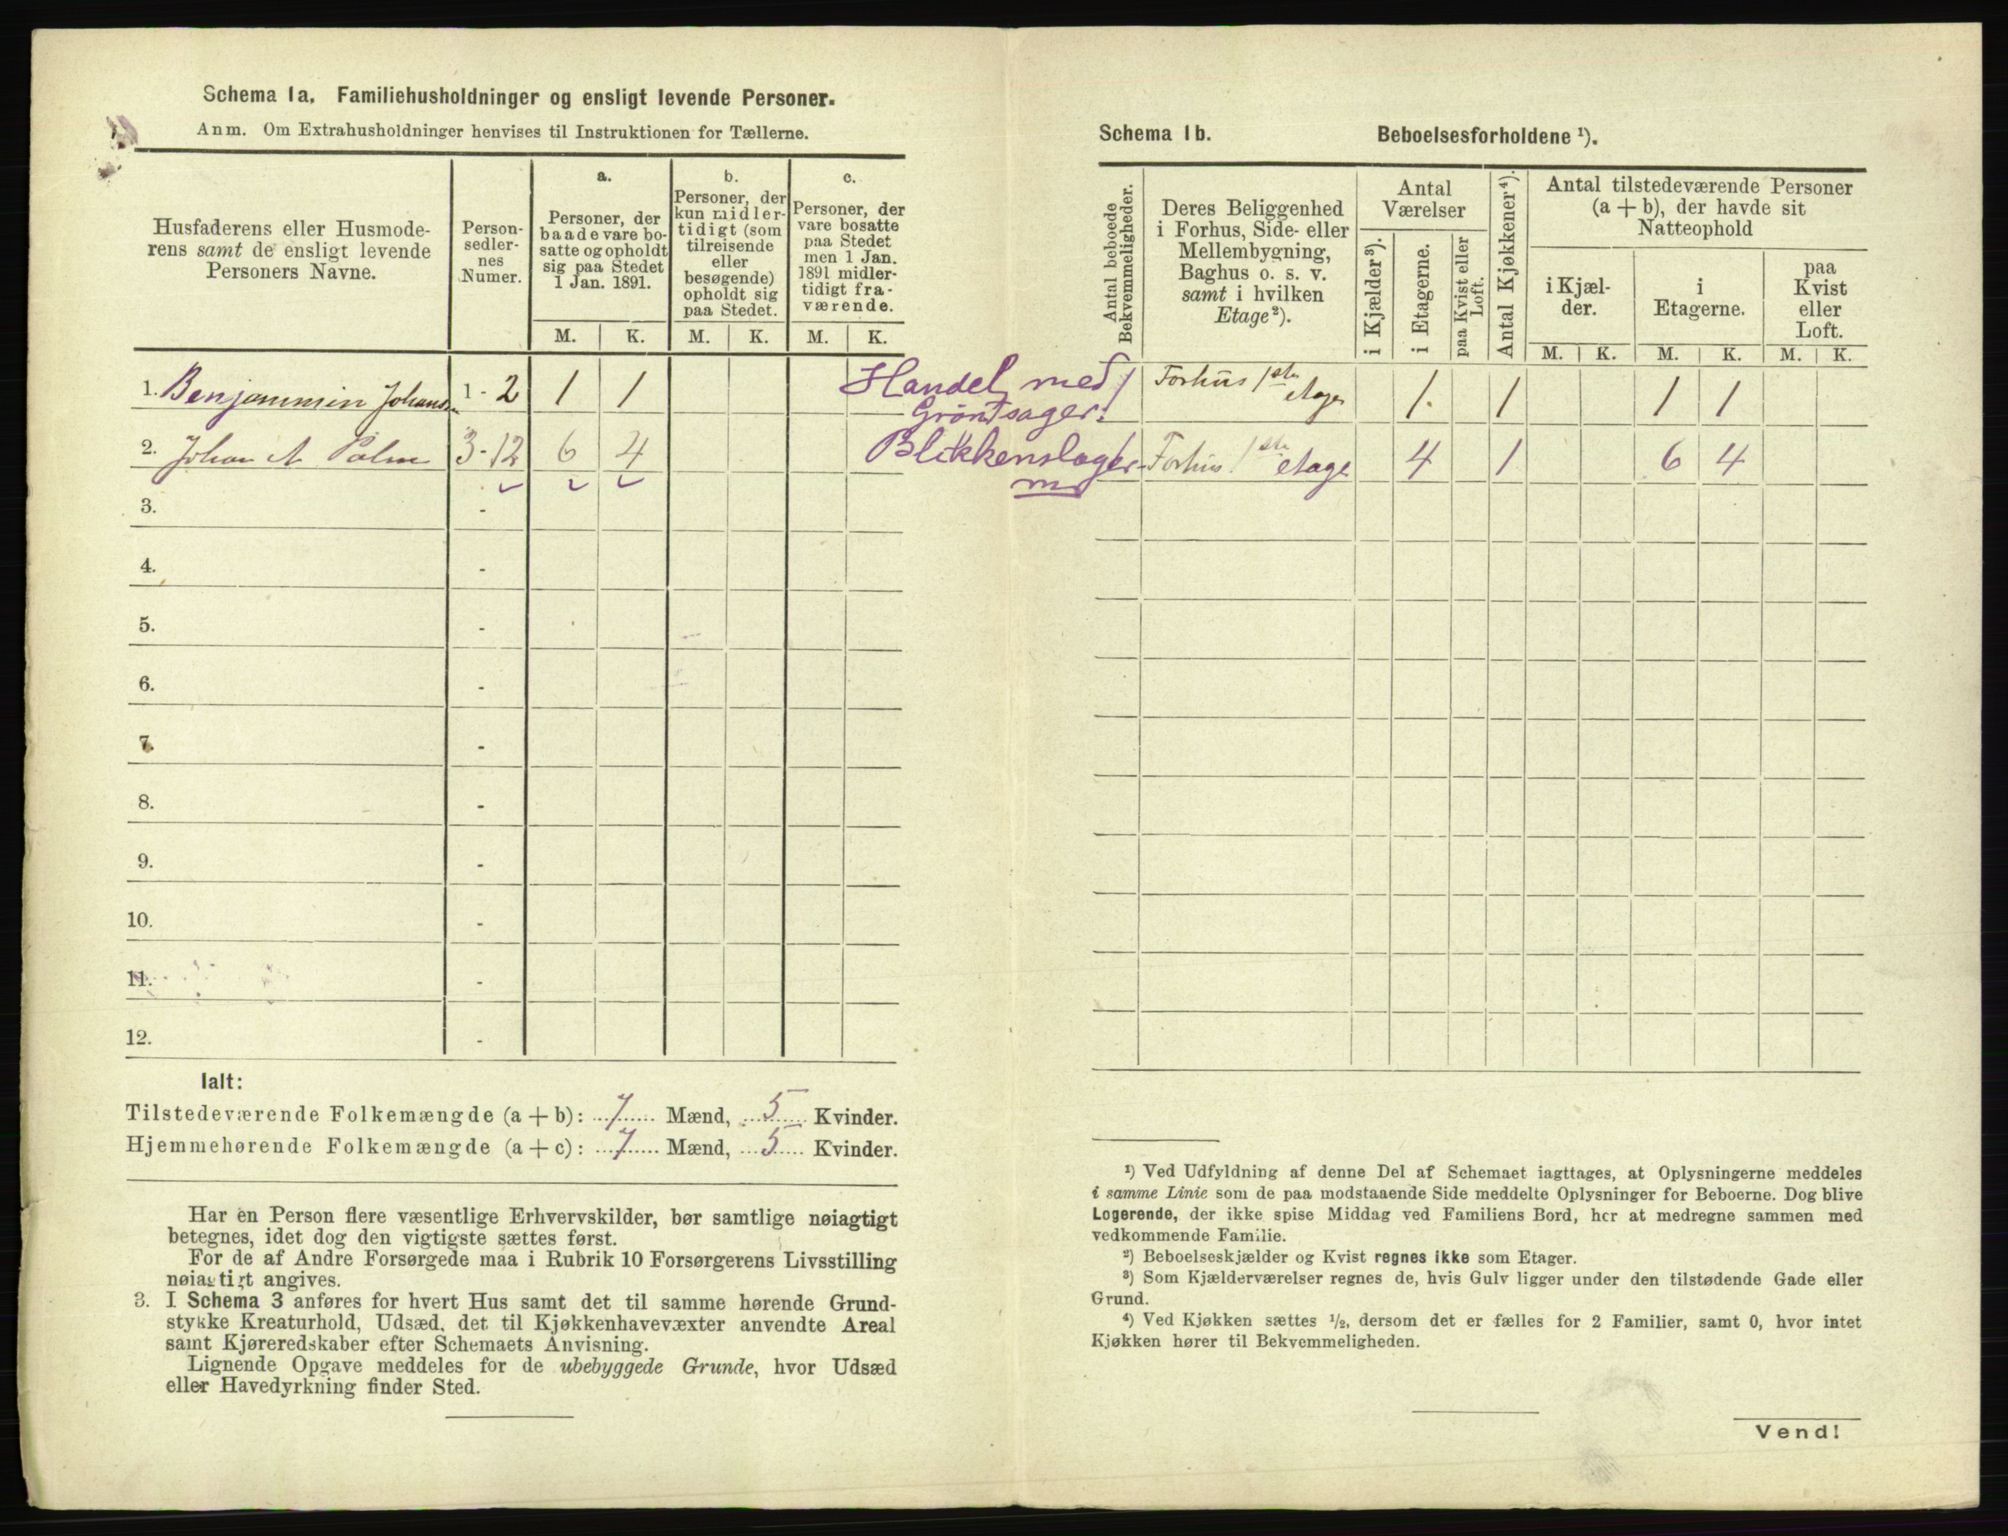 Schema 1a. Familiehusholdninger og ensligt levende Personer.
Anm. Om Extrahusholdninger henvises til Instruktionen for Tællerne.
Husfaderens eller Husmode-
rens samt de ensligt levende
Personers Navne.
Person-
sedler-
nes
Numer.
a.
Personer, der
baade vare bo-
satte og opholdt
sig paa Stedet
1 Jan. 1891.
b.
Personer, der
kun midler-
tidigt (som
tilreisende
eller
besøgende)
opholdt sig
paa Stedet.
c.
Personer, der
vare bosatte
paa Stedet
men 1 Jan.
1891 midler-
tidigt fra-
værende.
M. K. M. K. M. K.
1. Benjammin Johans 1 - 2 1 1
2. Johan A Palm 3 - 12 6 4
3. -
4. -
5. -
6. -
7. -
8. -
9. -
10. -
11. -
12. -
Ialt:
Tilstedeværende Folkemængde (a + b): 7 Mænd, 5 Kvinder.
Hjemmehørende Folkemængde (a + c): 7 Mænd, 5 Kvinder.
Har en Person flere væsentlige Erhvervskilder, bør samtlige nøiagtigt
betegnes, idet dog den vigtigste sættes først.
For de af Andre Forsørgede maa i Rubrik 10 Forsørgerens Livsstilling
nøiagtigt angives.
3. I Schema 3 anføres for hvert Hus samt det til samme hørende Grund-
stykke Kreaturhold, Udsæd, det til Kjøkkenhavevæxter anvendte Areal
samt Kjøreredskaber efter Schemaets Anvisning.
Lignende Opgave meddeles for de ubebyggede Grunde, hvor Udsæd
eller Havedyrkning finder Sted.
Schema 1b. Beboelsesforholdene ¹).
Antal beboede
Bekvemmeligheder.
Deres Beliggenhed
i Forhus, Side- eller
Mellembygning,
Baghus o. s. v.
samt i hvilken
Etage²).
Antal
Værelser
i Kjælder³).
i Etagerne.
paa Kvist eller
Loft.
Antal Kjøkkener⁴).
Antal tilstedeværende Personer
(a + b), der havde sit
Natteophold
i Kjæl-
der.
i
Etagerne.
paa
Kvist
eller
Loft.
M. K. M. K. M. K.
Handel med 1 Forhus 1ste etage 1. 1 1 1
Grøntsager.
Blikkenslager Forhus 1ste etage 4 1 6 4
m
¹) Ved Udfyldning af denne Del af Schemaet iagttages, at Oplysningerne meddeles
i samme Linie som de paa modstaaende Side meddelte Oplysninger for Beboerne. Dog blive
Logerende, der ikke spise Middag ved Familiens Bord, her at medregne sammen med
vedkommende Familie.
²) Beboelseskjælder og Kvist regnes ikke som Etager.
³) Som Kjælderværelser regnes de, hvis Gulv ligger under den tilstødende Gade eller
Grund.
⁴) Ved Kjøkken sættes ½, dersom det er fælles for 2 Familier, samt 0, hvor intet
Kjøkken hører til Bekvemmeligheden.
Vend!